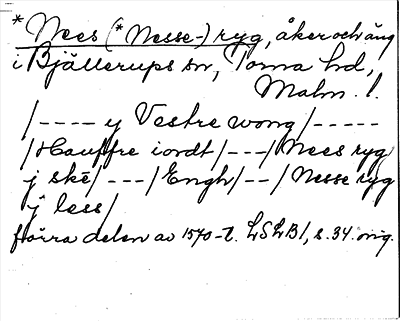 * Nees (* Nesse-) ryg, åker och äng
i Bjällerups sn, Torna hd,
Malm. l.
/---- y Vestre wong /-----
/Hauffre iordt/---/Nees ryg
j ské/---/Engh/--/Nesse ryg
ÿ less/
förra delen av 1570-t. LSLB1, s. 34. orig.